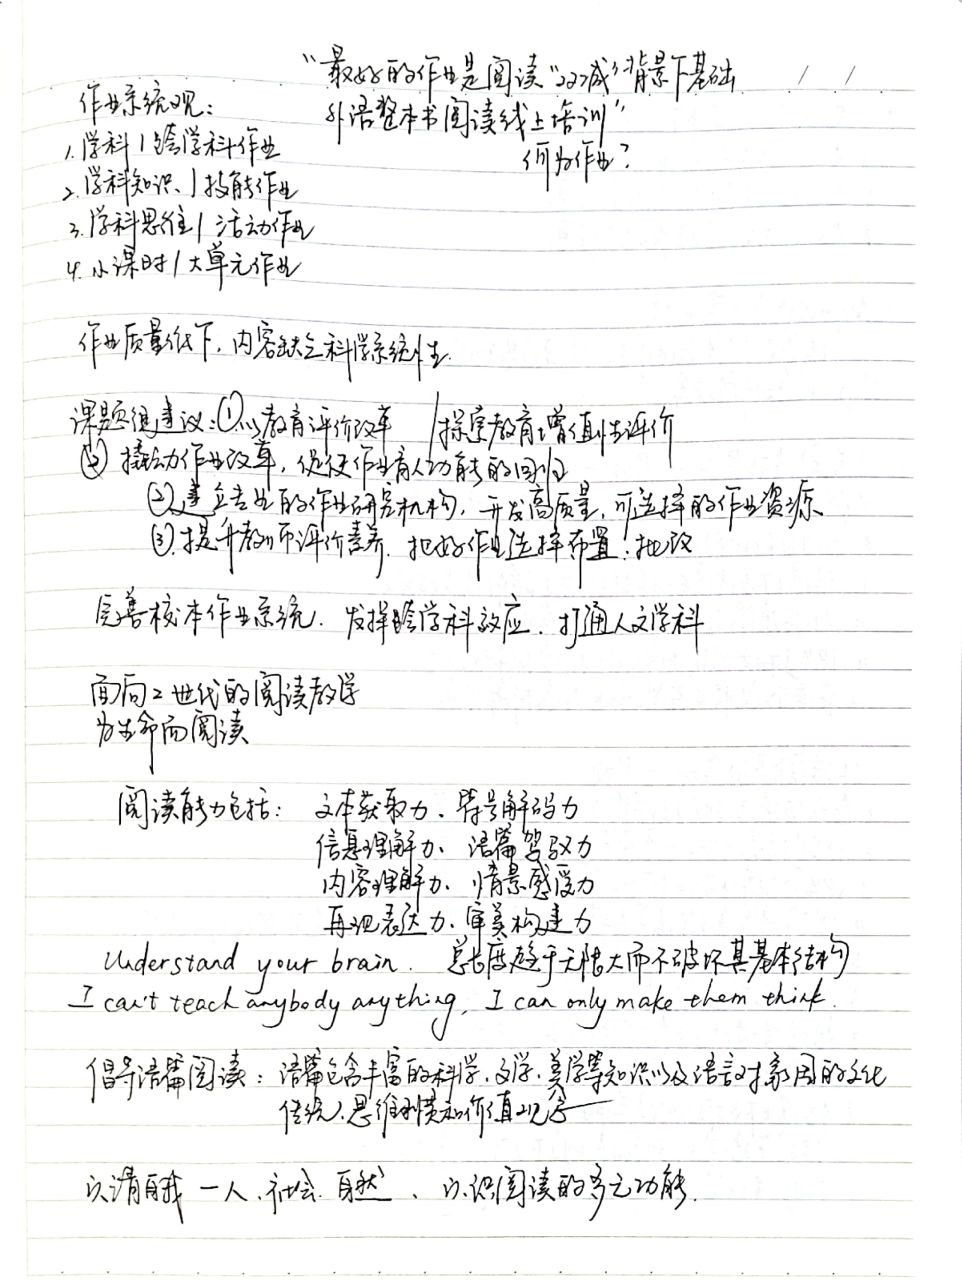 “最好的作业是阅读“双减”背景下基础
外语整本书阅读线上培训”
何为作业？
作业系统观：
1. 学科|跨学科作业
2. 学科知识、|技能作业
3. 学科思维|活动作业
4. 小课时|大单元作业
作业质量低下，内容缺乏科学系统性.
课题组建议：①以教育评价改革 |探索教育增值性评价
② 撬动作业改革，促使作业育人功能的回归
②建立专业的作业研究机构，开发高质量，可选择的作业资源
③.提升教师评价素养. 把好作业选择布置！批改
完善校本作业系统. 发挥跨学科效应. 打通人文学科
面向Z世代的阅读教学
为生命而阅读
阅读能力包括： 文本获取力、符号解码力
信息理解力、语篇驾驭力
内容理解力、情景感受力
再现表达力、审美构建力
Understand your brain. 总长度趋于无限大而不破坏其基本结构
I can't teach anybody anything, I can only make them think.
倡导语篇阅读：语篇包含丰富的科学、文学、美学等知识以及语言对象国的文化
传统、思维习惯和价值观念
认清自我 一人、社会、自然、认识阅读的多元功能.